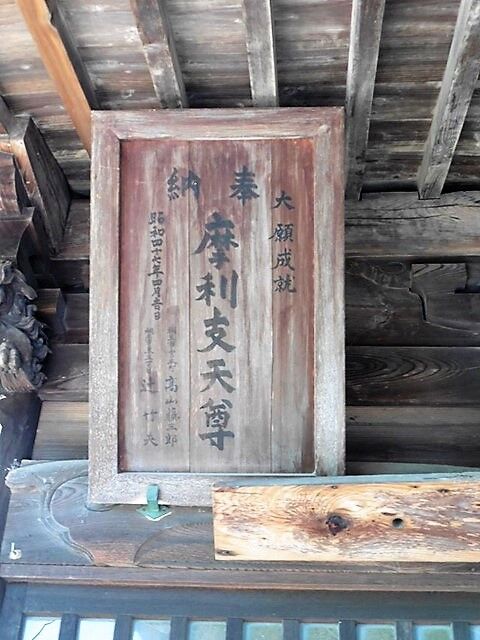 奉納
大願成就
摩利支天尊
昭和四十七年四月吉日
高山慎三郎
辻竹夫